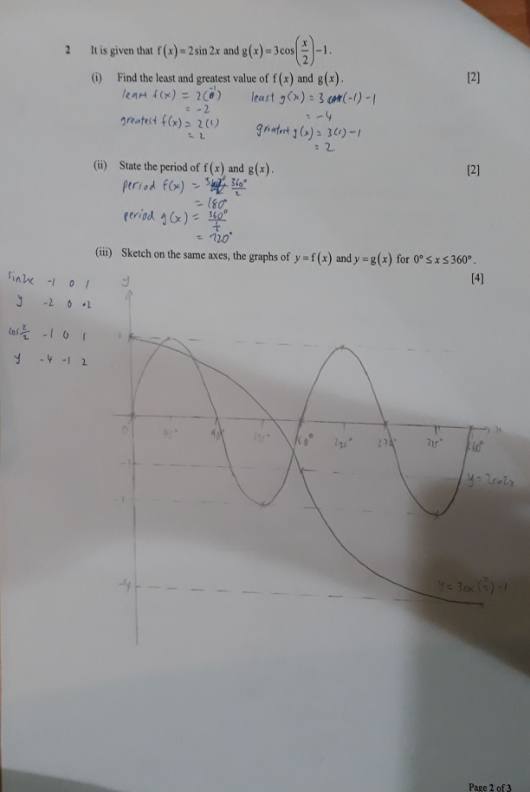 2 It is given that f(x) = 2 sin 2x and g(x) = 3cos(x/2) − 1.
(i) Find the least and greatest value of f(x) and g(x). [2]
least f(x) = 2(-1) least g(x) = 3(-1) - 1
= -2 = -4
greatest f(x) = 2(1) greatest g(x) = 3(1) - 1
= 2 = 2
(ii) State the period of f(x) and g(x). [2]
period f(x) = 360°/2
= 180°
period g(x) = 360°/
= 720°
(iii) Sketch on the same axes, the graphs of y = f(x) and y = g(x) for 0° ≤ x ≤ 360°.
[4]
sin2x -1 0 1
y -2 0 2
cos x/2 -1 0 1
y -4 -1 2
y
0 45° 90° 135° 180° 225° 270° 315° 360° x
-1
y = 2sin2x
-4
y = 3cos(x/2) - 1
Page 2 of 3